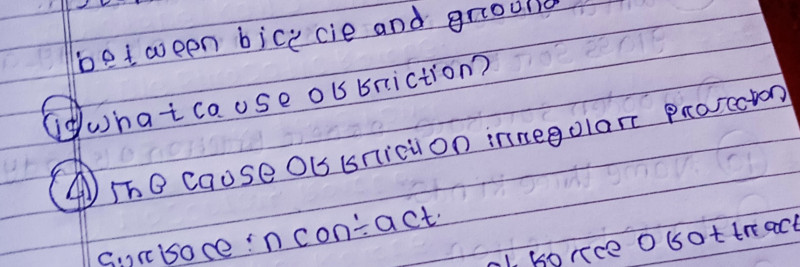 between bicycle and ground
19 what cause of friction?
A The cause of friction irregular projection
surface in contact.
force of attract